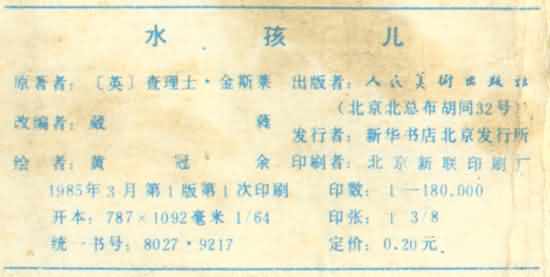 水孩儿
原著者：〔英〕查理士·金斯莱 出版者：人民美术出版社
（北京北总布胡同32号）
改编者：葳 蕤
发行者：新华书店北京发行所
绘 者：黄 冠 余 印刷者：北京新联印刷厂
1985年3月第1版第1次印刷 印数：1—180,000
开本：787×1092毫米 1/64 印张：1 3/8
统一书号：8027·9217 定价：0.20元